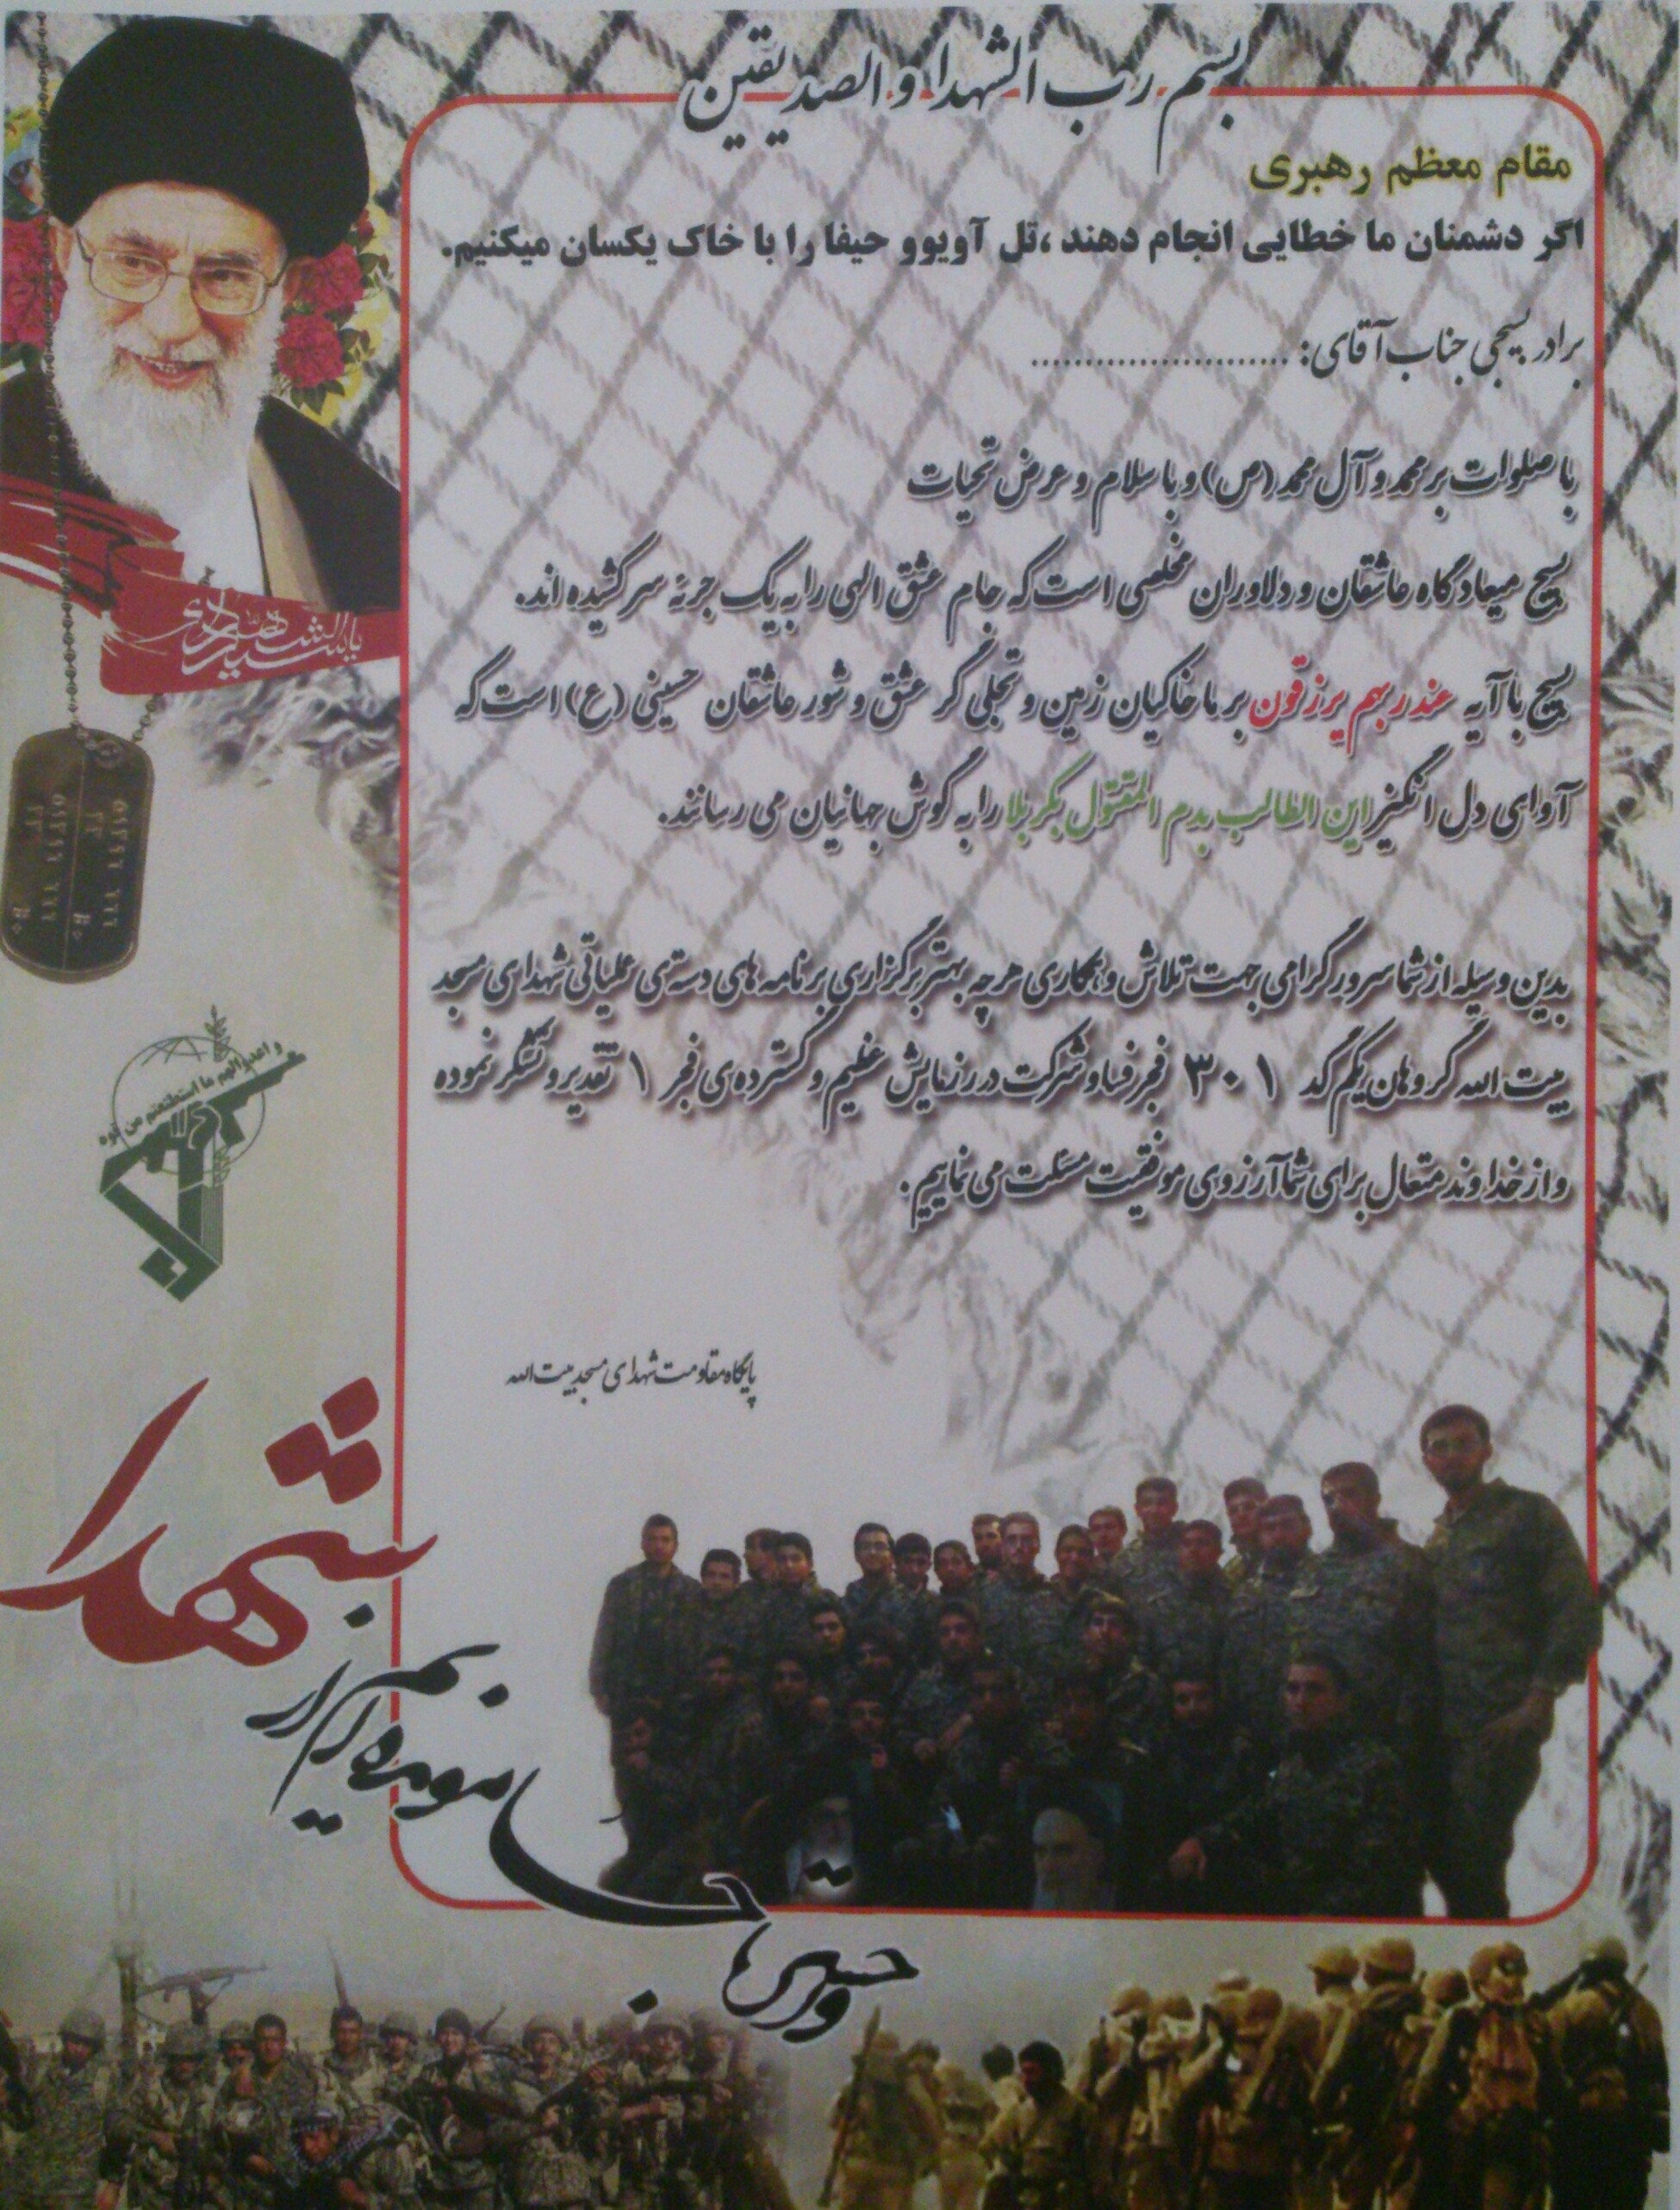 بسم رب الشهدا و الصدیقین
مقام معظم رهبری
اگر دشمنان ما خطایی انجام دهند ،تل آویوو حیفا را با خاک یکسان میکنیم.
برادر بسیجی جناب آقای: ........................
با صلوات بر محمد و آل محمد (ص) و با سلام و عرض تحیات
بسیج میعادگاه عاشقان و دلاوران مخلصی است که جام عشق الهی را به یک جرعه سر کشیده اند.
بسیج با آیه عند ربهم یرزقون بر ما خاکیان زمین و تجلی گر عشق و شور عاشقان حسینی (ع) است که
آوای دل انگیز این الطالب بدم المقتول بکربلا را به گوش جهانیان می رسانند.
بدین وسیله از شما سرور گرامی جهت تلاش و همکاری هر چه بهتر برگزاری برنامه های دسته ی عملیاتی شهدای مسجد
بیت الله گروهان یکم گد ۳۰۱ فجر فسا و شرکت در رزمایش عظیم و گسترده ی فجر ۱ تقدیر و تشکر نموده
و از خداوند متعال برای شما آرزوی موفقیت مسئلت می نماییم.
پایگاه مقاومت شهدای مسجد بیت الله
و اعدوا لهم ما استطعتم من قوة
شهدا